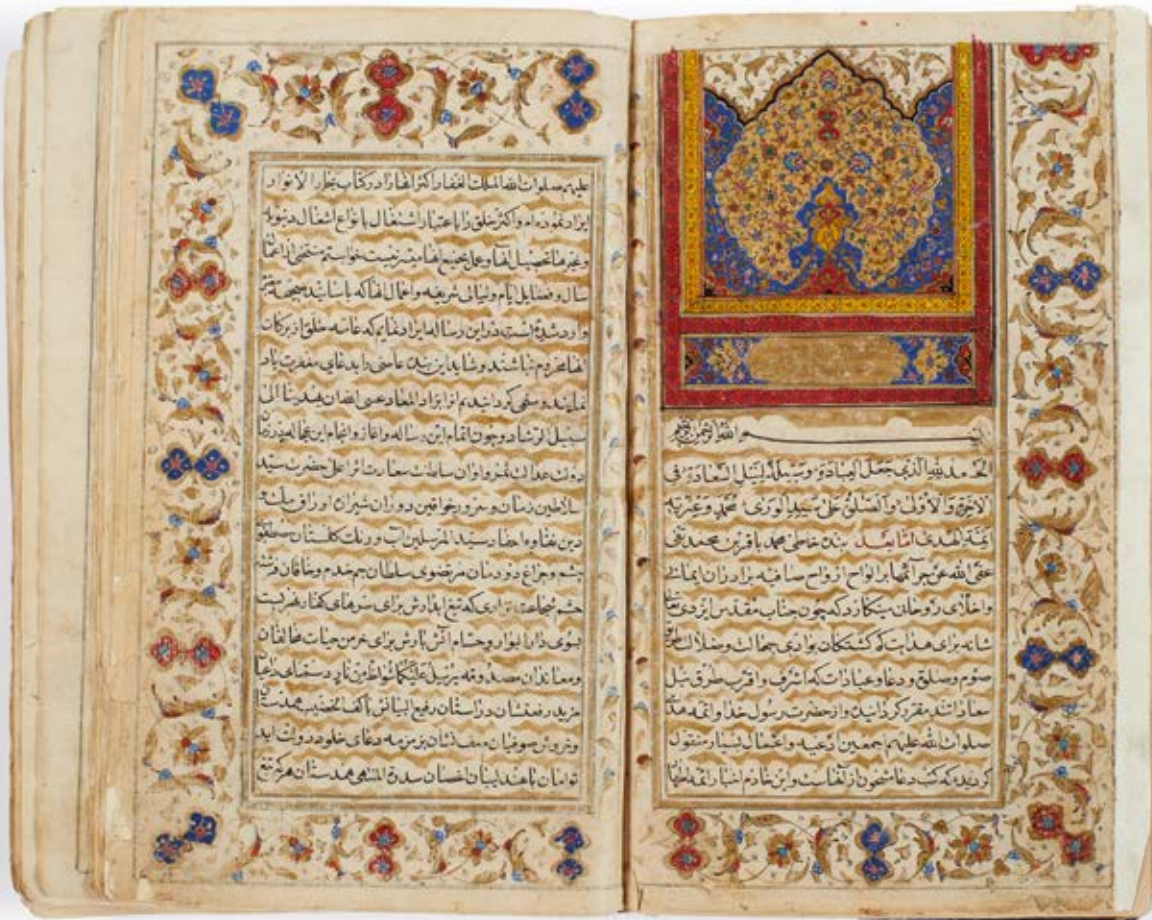 بسم الله الرحمن الرحیم
الحمد لله الذی جعل العبادة وسیلة لنیل السعادة فی
الآخرة والاولی والصلوة علی سید الوری محمد وعترته
ائمة الهدی اما بعد بنده خاطی محمد باقر بن محمد تقی
عفی الله عن جرائمهما بر الواح ارواح صافیه برادران ایمانی
واخلای روحانی مینگارد که چون جناب مقدس ایزدی تعالی
شانه برای هدایت کم کشتکان بوادی جهالت وضلالت
صوم وصلوة ودعا وعبادات که اشرف واقرب طرق نیل
سعادتند مقرر کردانیده واز حضرت رسول خدا وائمه هدی
صلوات الله علیهم اجمعین ادعیه واعمال بسیار منقول
کردیده که کتب دعا مشحون از آنهاست واین خادم اخبار ائمه اطهار
علیهم صلوات الله الملک الغفار اکثر آنها را در کتاب بحار الانوار
ایراد نموده‌ام واکثر خلق را باعتبار اشتغال بانواع اشغال دنیویه
وغیرها تحصیل آنها وعمل بجمیع آنها میسر نیست خواستم منتخبی از اعمال
سال وفضایل ایام ولیالی شریفه واعمال آنها که باسانید صحیحه معتبره
وارد شده است در این رساله ایراد نمایم که عامه خلق از برکات
آنها محروم نباشند وشاید این بنده عاصی را بدعای مغفرت یاد
نمایند ومسمی کردانیدم آنرا بزاد المعاد عسی الله ان یهدینا الی
سبیل الرشاد وچون اتمام این رساله واغاز وانجام این عجاله در زمان
دولت عدالت واوان سلطنت سعادت اثر اعلی حضرت سید
سلاطین زمان وسرور خواقین دوران شیرازه اوراق ملت و
دین نقاوه احفاد سید المرسلین آب ورنک کلستان مصطفوی
چشم وچراغ دودمان مرتضوی سلطان جم خدم وخاقان فرشته
حشم شجاعت نژادی که تیغ برای سرهای کفار
بوی دار البوار وحسام آتش بارش برای خرمن حیات مخالفان
ومعاندان مصدوقه یرسل علیکما شواظ من نار دستهای داعیان
مزید رفعتشان در آستان رفیع البنیانش با کف الخضیب همدستان
صوفیان صفوت نشان بزمزمه دعای خلود دولت ابد
توامان با عندلیبان اغصان سدرة المنتهی همدستان هر که تیغ